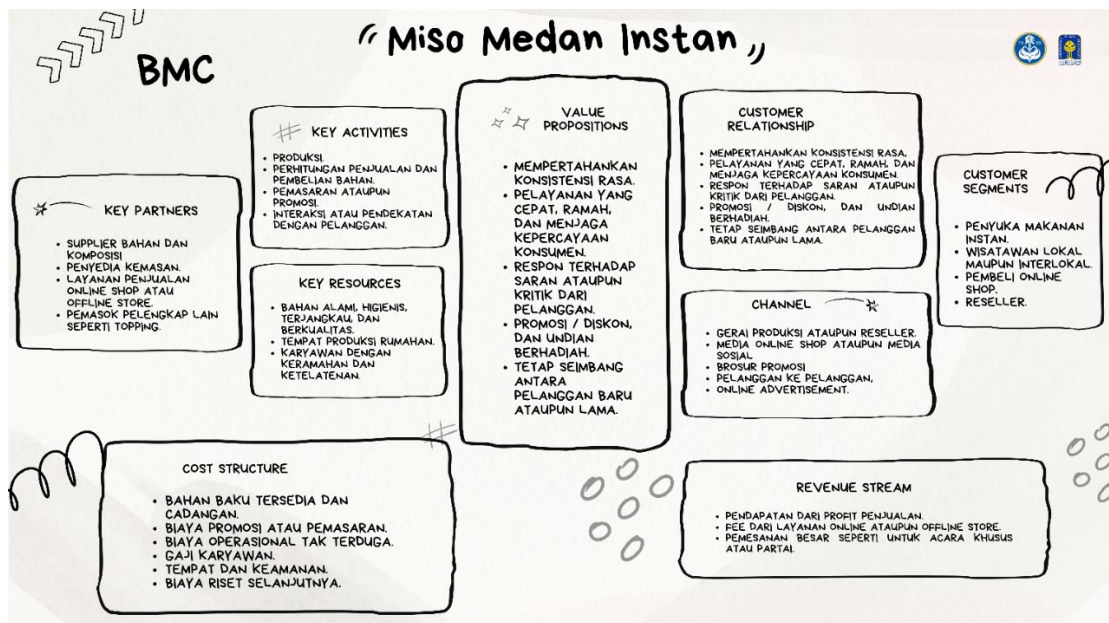 “ Miso Medan Instan „
BMC
KEY PARTNERS
• SUPPLIER BAHAN DAN
KOMPOSISI
• PENYEDIA KEMASAN.
• LAYANAN PENJUALAN
ONLINE SHOP ATAU
OFFLINE STORE.
• PEMASOK PELENGKAP LAIN
SEPERTI TOPPING.
KEY ACTIVITIES
• PRODUKSI.
• PERHITUNGAN PENJUALAN DAN
PEMBELIAN BAHAN.
• PEMASARAN ATAUPUN
PROMOSI.
• INTERAKSI ATAU PENDEKATAN
DENGAN PELANGGAN.
KEY RESOURCES
• BAHAN ALAMI, HIGIENIS,
TERJANGKAU, DAN
BERKUALITAS.
• TEMPAT PRODUKSI RUMAHAN.
• KARYAWAN DENGAN
KERAMAHAN DAN
KETELATENAN.
VALUE
PROPOSITIONS
• MEMPERTAHANKAN
KONSISTENSI RASA.
• PELAYANAN YANG
CEPAT, RAMAH,
DAN MENJAGA
KEPERCAYAAN
KONSUMEN.
• RESPON TERHADAP
SARAN ATAUPUN
KRITIK DARI
PELANGGAN.
• PROMOSI / DISKON,
DAN UNDIAN
BERHADIAH.
• TETAP SEIMBANG
ANTARA
PELANGGAN BARU
ATAUPUN LAMA.
CUSTOMER
RELATIONSHIP
• MEMPERTAHANKAN KONSISTENSI RASA.
• PELAYANAN YANG CEPAT, RAMAH, DAN
MENJAGA KEPERCAYAAN KONSUMEN.
• RESPON TERHADAP SARAN ATAUPUN
KRITIK DARI PELANGGAN.
• PROMOSI / DISKON, DAN UNDIAN
BERHADIAH.
• TETAP SEIMBANG ANTARA PELANGGAN
BARU ATAUPUN LAMA.
CHANNEL
• GERAI PRODUKSI ATAUPUN RESELLER.
• MEDIA ONLINE SHOP ATAUPUN MEDIA
SOSIAL
• BROSUR PROMOSI
• PELANGGAN KE PELANGGAN,
• ONLINE ADVERTISEMENT.
CUSTOMER
SEGMENTS
• PENYUKA MAKANAN
INSTAN.
• WISATAWAN LOKAL
MAUPUN INTERLOKAL.
• PEMBELI ONLINE
SHOP.
• RESELLER.
COST STRUCTURE
• BAHAN BAKU TERSEDIA DAN
CADANGAN.
• BIAYA PROMOSI ATAU PEMASARAN.
• BIAYA OPERASIONAL TAK TERDUGA.
• GAJI KARYAWAN.
• TEMPAT DAN KEAMANAN.
• BIAYA RISET SELANJUTNYA.
REVENUE STREAM
• PENDAPATAN DARI PROFIT PENJUALAN.
• FEE DARI LAYANAN ONLINE ATAUPUN OFFLINE STORE.
• PEMESANAN BESAR SEPERTI UNTUK ACARA KHUSUS
ATAU PARTAI.